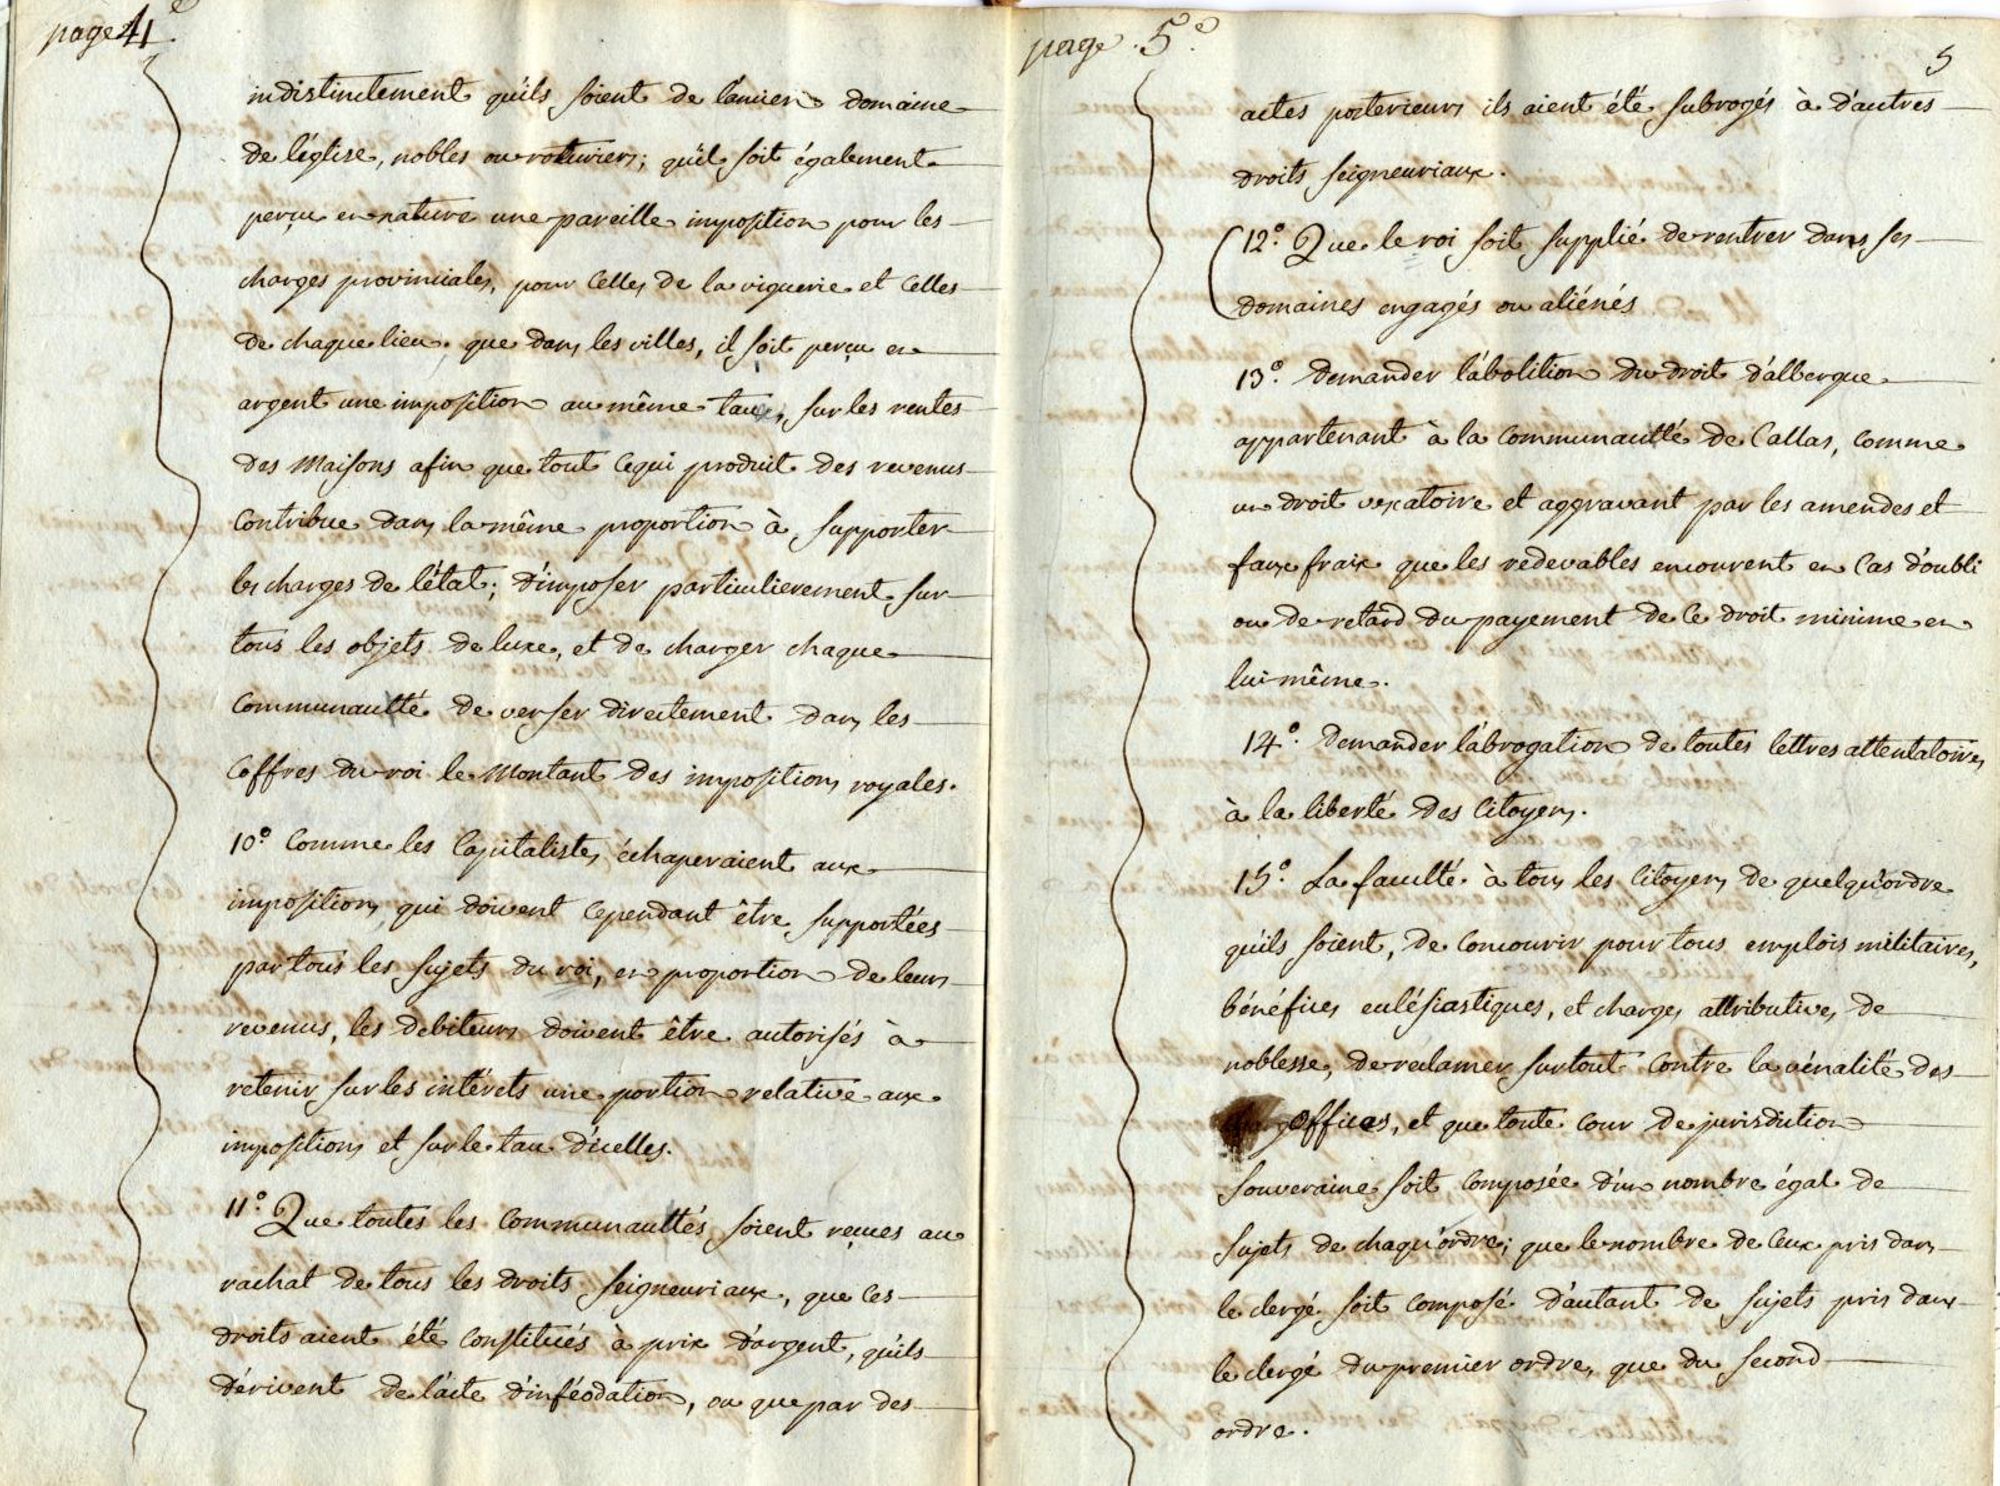 page 4e
indistinctement qu'ils soient de l'ancien domaine
de l'église, nobles ou roturiers; qu'il soit également
perçu en nature une pareille imposition pour les
charges provinciales, pour celles de la viguerie et celles
de chaque lieu. que dans les villes, il soit perçu en
argent une imposition au même taux, sur les rentes
des maisons afin que tout ce qui produit des revenus
contribue dans la même proportion à supporter
les charges de l'état; d'imposer particulierement sur
tous les objets de luxe, et de charger chaque
communauté de verser directement dans les
coffres du roi le montant des impositions royales.
10° Comme les capitalistes échaperaient aux
impositions, qui doivent cependant être supportées
par tous les sujets du roi, en proportion de leurs
revenus, les debiteurs doivent être autorisés à
retenir sur les intérets une portion relative aux
impositions et sur le tau d'icelles.
11° Que toutes les communautés soient reçues au
rachat de tous les droits seigneuriaux, que ces
droits aient été constitués à prix d'argent, qu'ils
dérivent de l'acte d'inféodation, ou que par des
page 5e
5
actes posterieurs ils aient été subrogés à d'autres
droits seigneuriaux.
12° Que le roi soit supplié de rentrer dans ses
domaines engagés ou aliénés
13° demander l'abolition du droit d'albergue
appartenant à la communauté de Callas, comme
un droit vexatoire et aggravant par les amendes et
faux fraix que les redevables encourent en cas d'oubli
ou de retard du payement de ce droit minime en
lui même.
14° demander l'abrogation de toutes lettres attentatoires
à la liberté des citoyens.
15° La faculté à tous les citoyens de quelqu'ordre
qu'ils soient, de concourir pour tous emplois militaires,
bénéfices eclésiastiques, et charges attributives de
noblesse, de reclamer surtout contre la vénalité des
offices, et que toute cour de jurisdiction
souveraine soit composée d'un nombre égal de
sujets de chaqu'ordre; que le nombre de ceux pris dans
le clergé soit composé d'autant de sujets pris dans
le clergé du premier ordre, que du second
ordre.